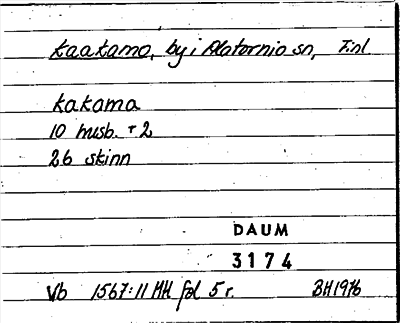 Kaakamo, by i Alatornio sn, Finl
Kakama
10 husb. + 2
26 skinn
DAUM
3174
Vb 1567:11 MH fol 5 r. BH 1976